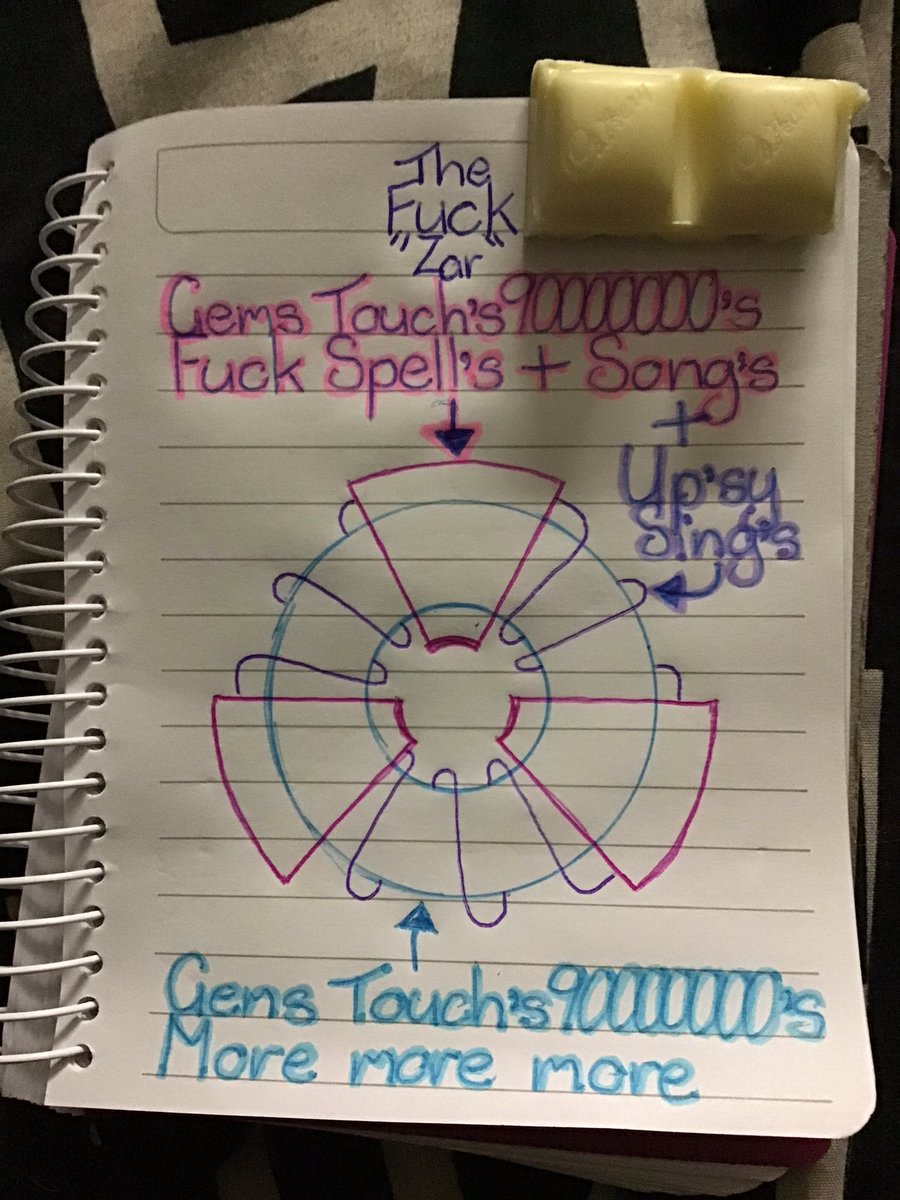 The
Fuck
"Zar"
Gems Touch's 90000000's
Fuck Spell's + Song's
+
Up'sy
Sling's
Gems Touch's 900000000's
More more more